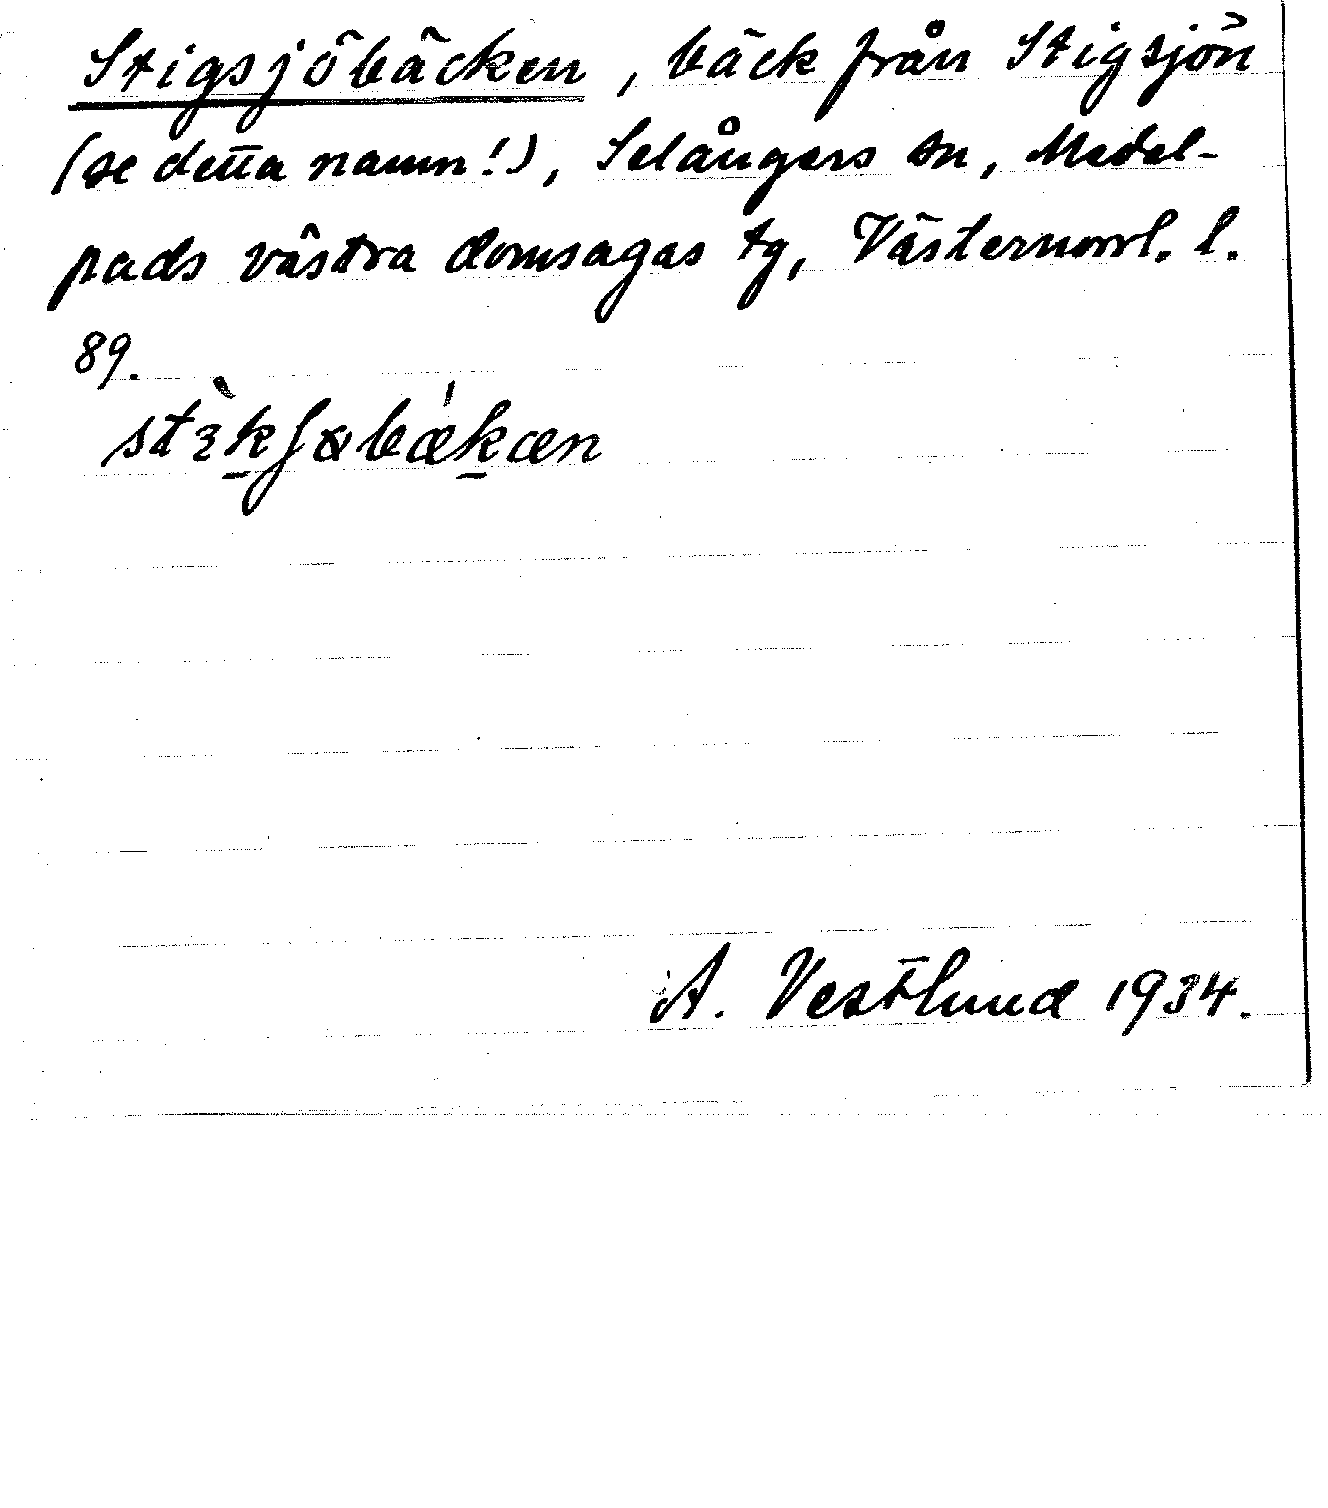 Stigsjöbäcken, bäck från Stigsjön
(se detta namn!), Selångers sn, Medel-
pads västra domsagas tg, Västernorrl. l.
89.
A. Vestlund 1934.